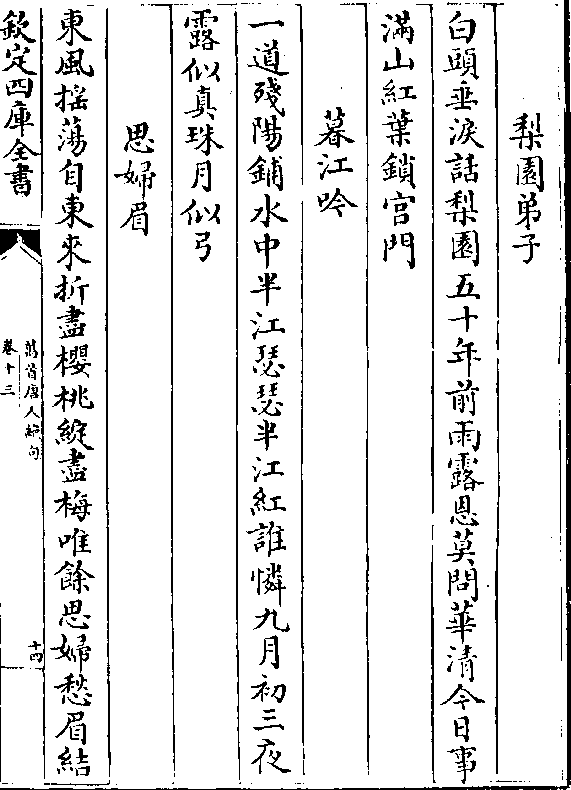 梨園弟子
白頭垂淚話梨園五十年前雨露恩莫問華清今日事
滿山紅葉鎖宫門
暮江吟
一道殘陽鋪水中半江瑟瑟半江紅誰憐九月初三夜
露似真珠月似弓
思婦眉
東風揺蕩自東來折盡櫻桃綻盡梅唯餘思婦愁眉結
欽定四庫全書
萬首唐人絶句
卷十三
十四